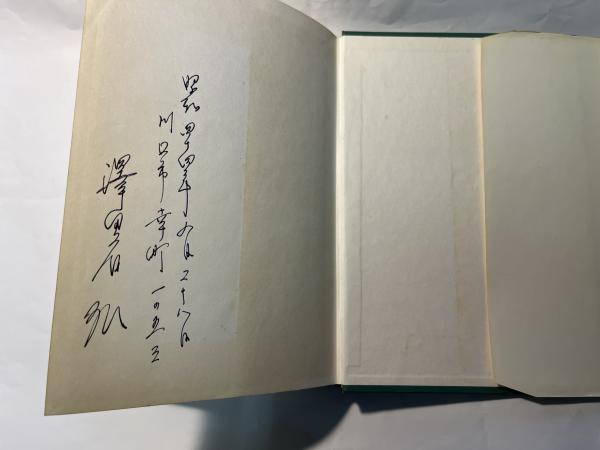 昭和四十四年九月二十八日
川口市幸町一の五三
澤思石